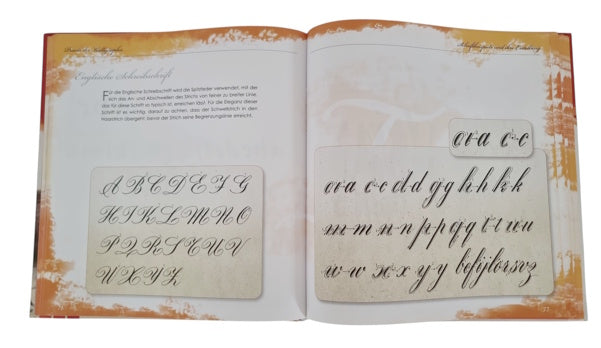 Englische Schreibschrift
Für die Englische Schreibschrift wird die Spitzfeder verwendet, mit der
sich das An- und Abschwellen des Strichs von feiner zu breiter Linie,
das für diese Schrift so typisch ist, erreichen lässt. Für die Eleganz dieser
Schrift ist es wichtig, darauf zu achten, dass der Schwellstrich in den
Haarstrich übergeht, bevor der Strich seine Begrenzungslinie erreicht.
A B C D E F G
H I K L M N O
P Q R S T U V
W X Y Z
ova c-c
ova c-c d d g g h h k k
m m n n p p q q t t u u
w w x x y y b e f i j l o r s v z
77